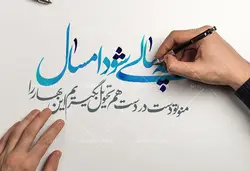 چه سالی شود امسال
من و تو دست در دست هم تحویل بگیریم این بهار را